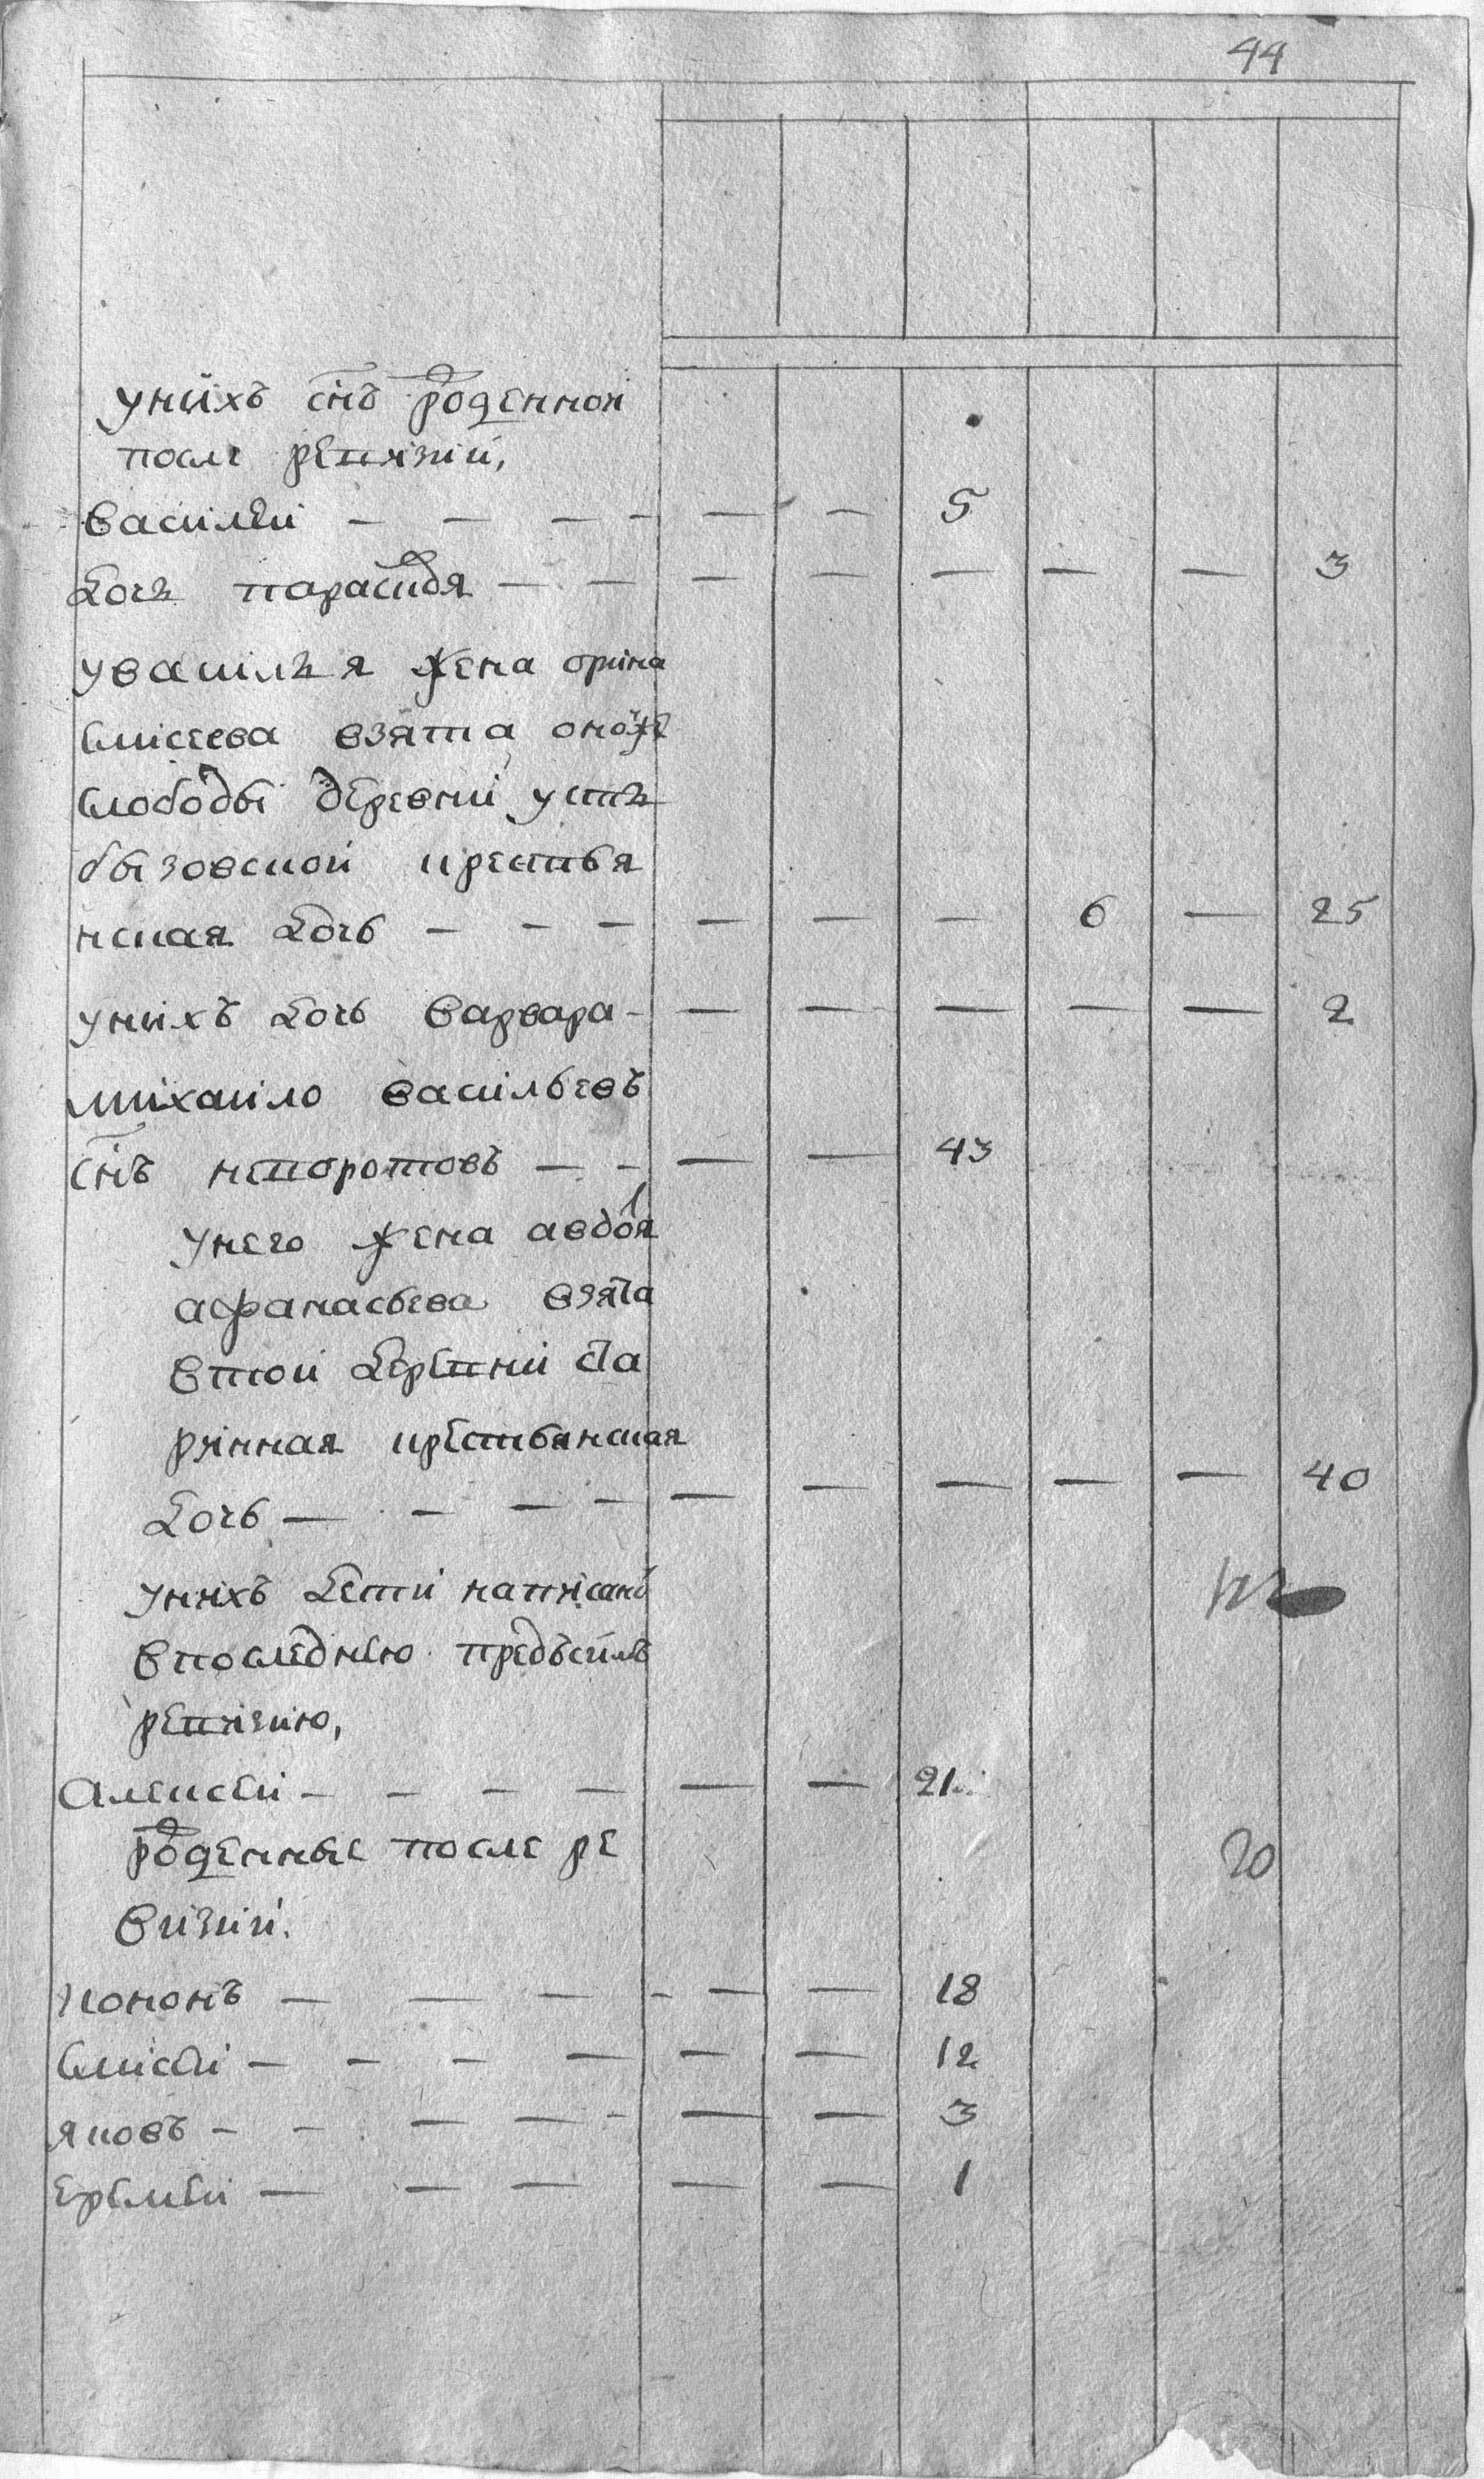 44
унихъ снъ роженной
после ревизии,
василеи — — — — — — 5
дочь парасковя — — — — — — — 3
увасилья жена орина
елисеева взята оноже
слободы деревни усть
бызовской крестья
нская дочь — — — — — — 6 — 25
унихъ дочь варвара — — — — — — 2
михаило васильевъ
снъ непоротовъ — — — — 43
унего жена авдоя
афанасьева взята
втой деревни ста
ринная крестьянская
дочь — — — — — — — — — 40
унихъ дети написаны
впоследнею предъсимъ
ревизию,
алексеи — — — — — — 21
роженные после ре
20
визии.
кононъ — — — — — — 18
елисеи — — — — — — 12
яковъ — — — — — — — 3
еремеи — — — — — — 1